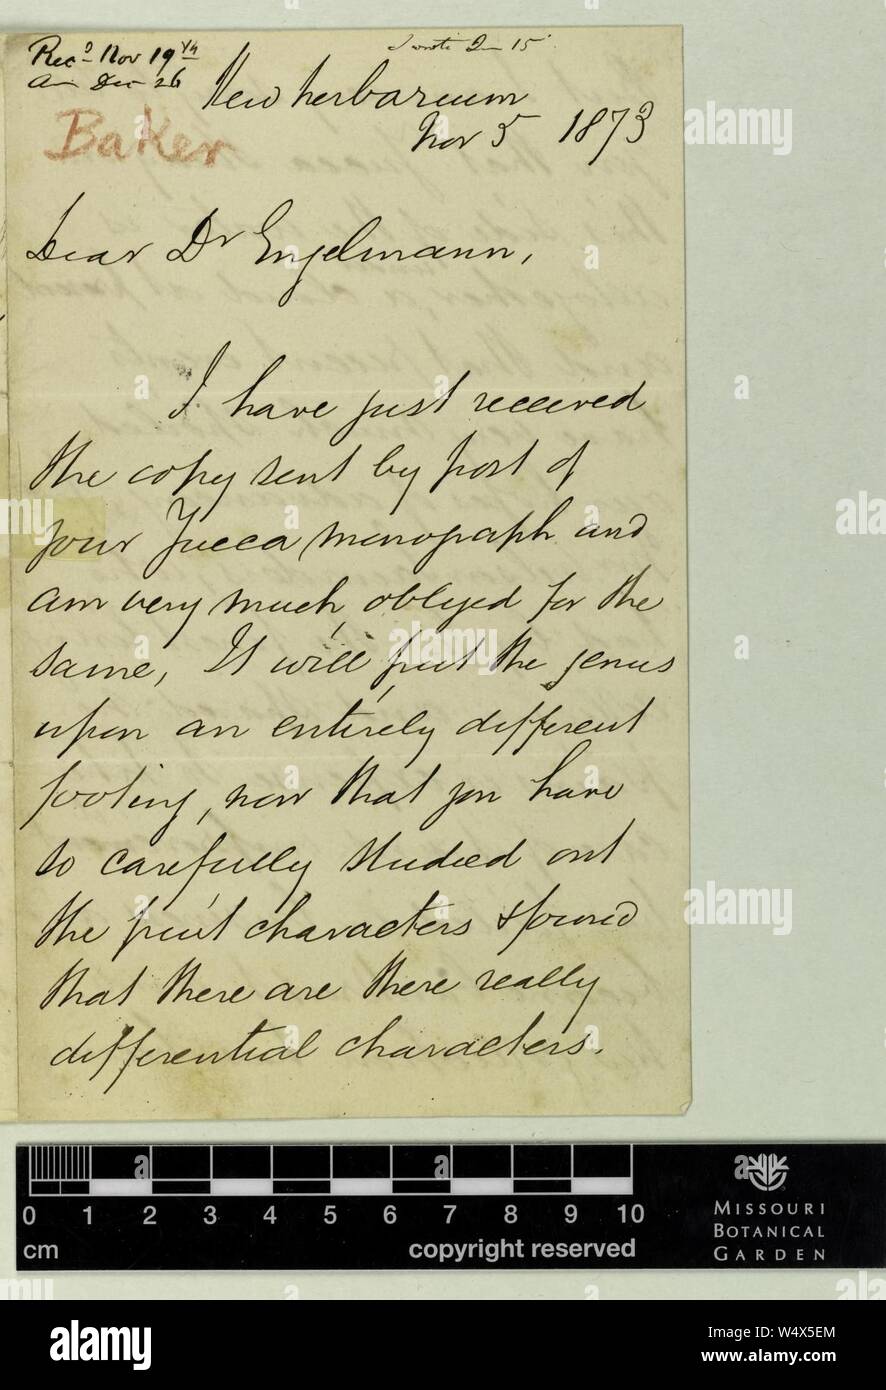 Recd Nov 19th
An Dec 26
I wrote Jan 15
Baker
Kew herbarium
Nov 5 1873
Dear Dr Engelmann,
I have just received
the copy sent by post of
your Yucca monograph and
am very much obliged for the
same, It will put the genus
upon an entirely different
footing, now that you have
so carefully studied out
the fruit characters & found
that there are there really
differential characters.
0 1 2 3 4 5 6 7 8 9 10
cm
copyright reserved
MISSOURI
BOTANICAL
GARDEN
alamy
alamy
Image ID: W4X5EM
www.alamy.com